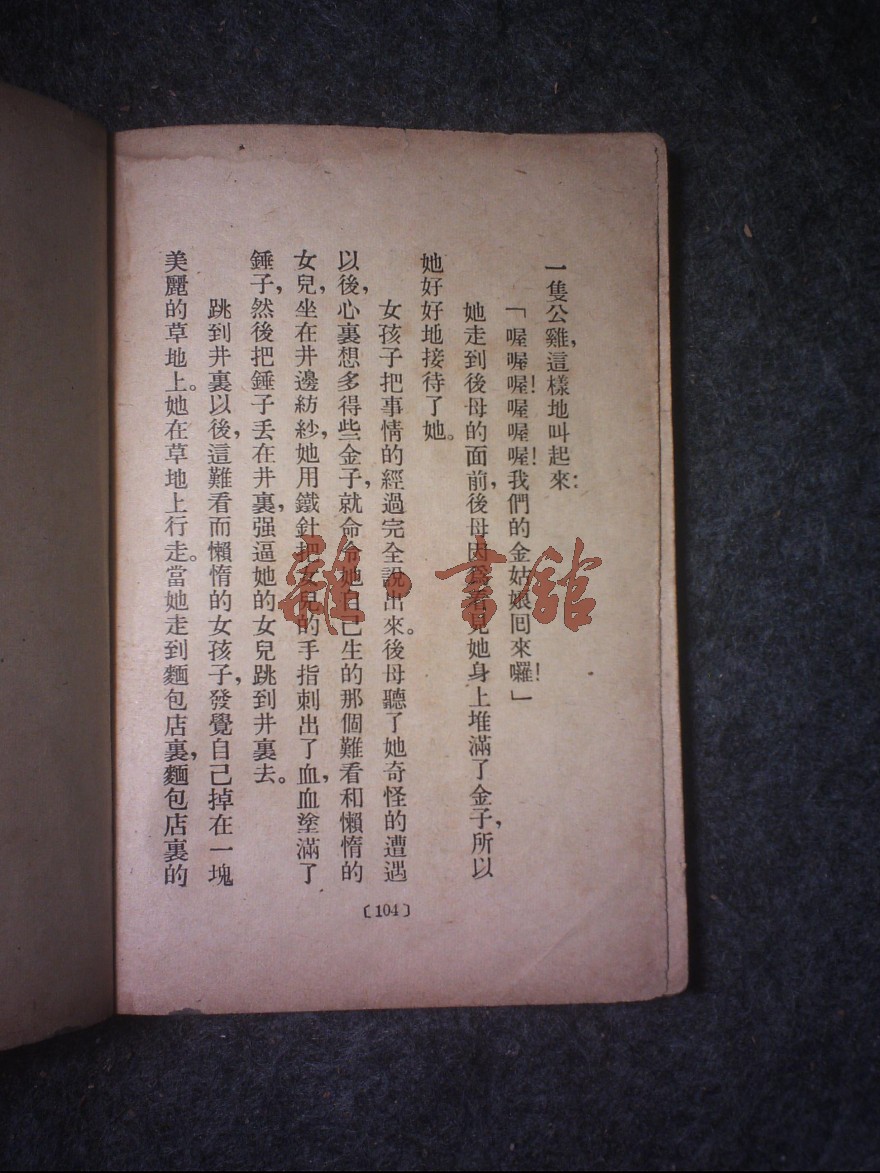 一隻公雞，這樣地叫起來：
「喔喔喔！喔喔喔！我們的金姑娘回來囉！」
她走到後母的面前，後母因爲看見她身上堆滿了金子，所以
她好好地接待了她。
女孩子把事情的經過完全說出來。後母聽了她奇怪的遭遇
以後，心裏想多得些金子，就命令她自己生的那個難看和懶惰的
女兒，坐在井邊紡紗，她用鐵針把女兒的手指刺出了血，血塗滿了
錘子，然後把錘子丢在井裏，强逼她的女兒跳到井裏去。
跳到井裏以後，這難看而懶惰的女孩子，發覺自己掉在一塊
美麗的草地上。她在草地上行走。當她走到麵包店裏，麵包店裏的
〔104〕
雜·書館